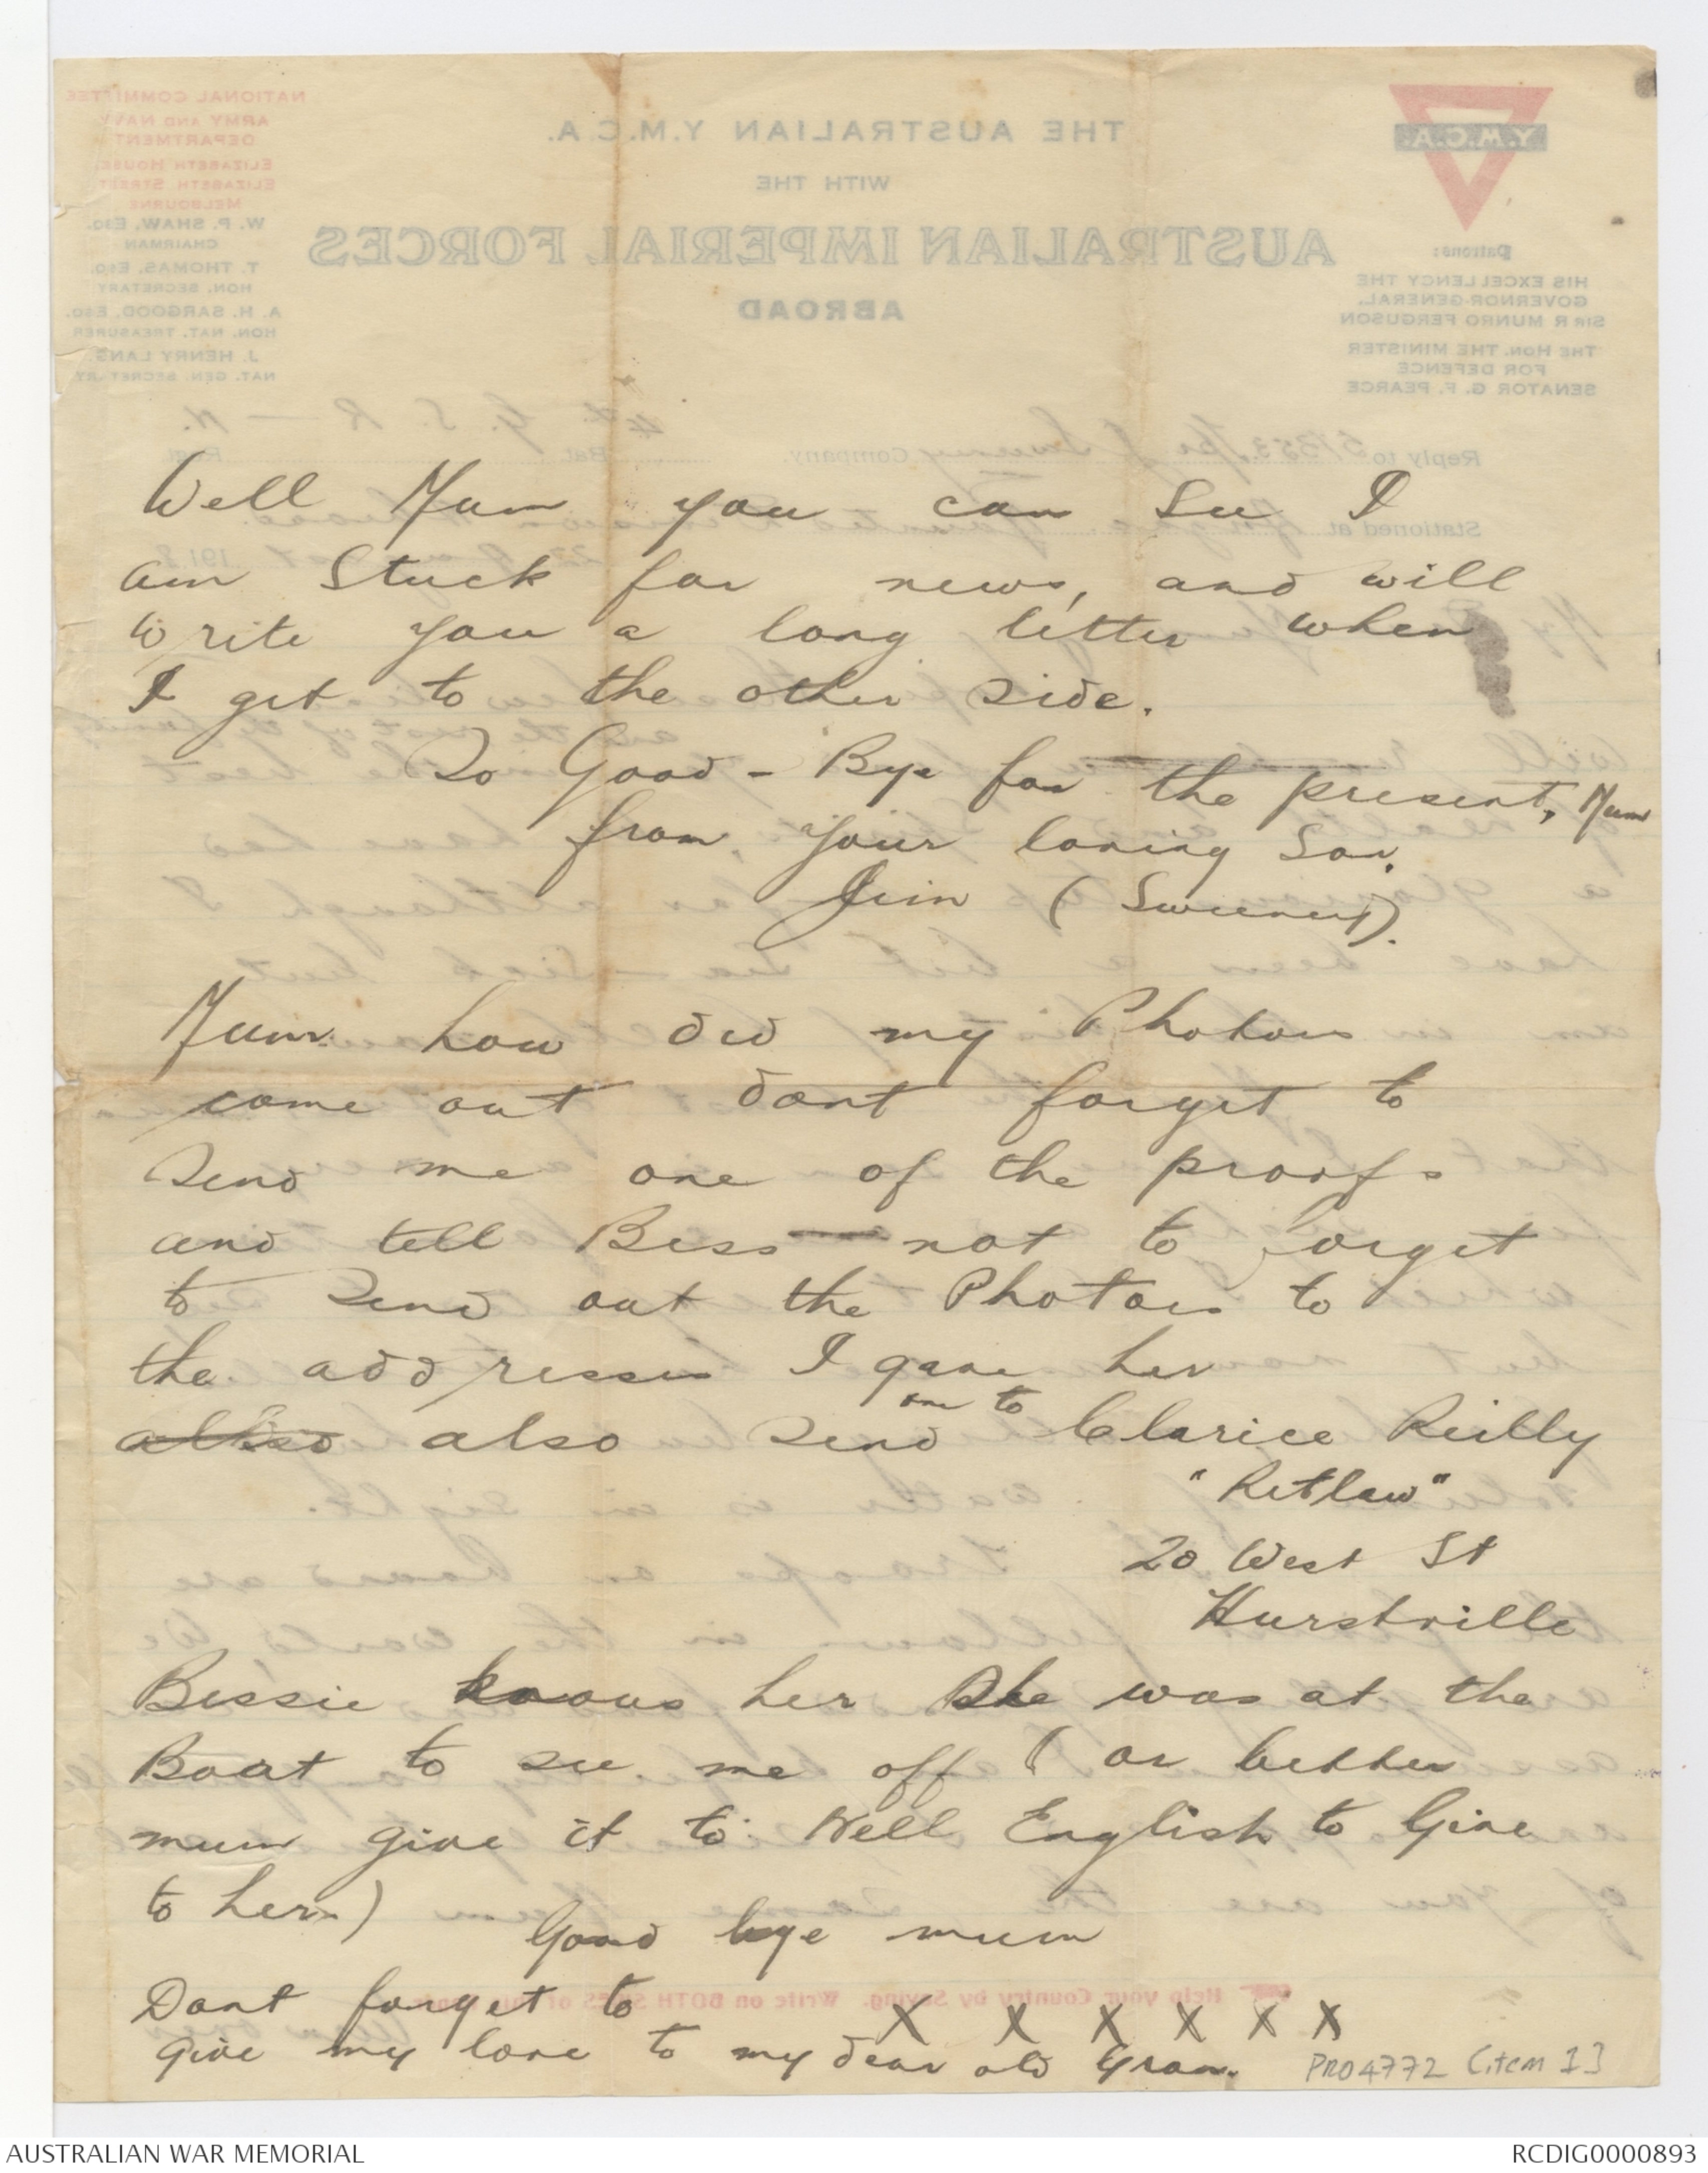 Well Mum you can see I
am Stuck for news, and will
write you a long letter when
I get to the other side.
So Good - Bye for the present, Mum
from, your loving Son,
Jim (Sweeney).
Mum how did my Photoes
come out dont forget to
Send me one of the proofs
and tell Bess not to forget
to Send out the Photoes to
the addresses I gave her
also Send one to Clarice Reilly
"Retlaw"
20 West St
Hurstville
Bessie knows her She was at the
Boat to see me off (or better
mum give it to Nell English to Give
to her)
Good bye mum
Dont forget to
X X X X X X
give my love to my dear old Gran.
PR04772 [item 1]
AUSTRALIAN WAR MEMORIAL
RCDIG0000893